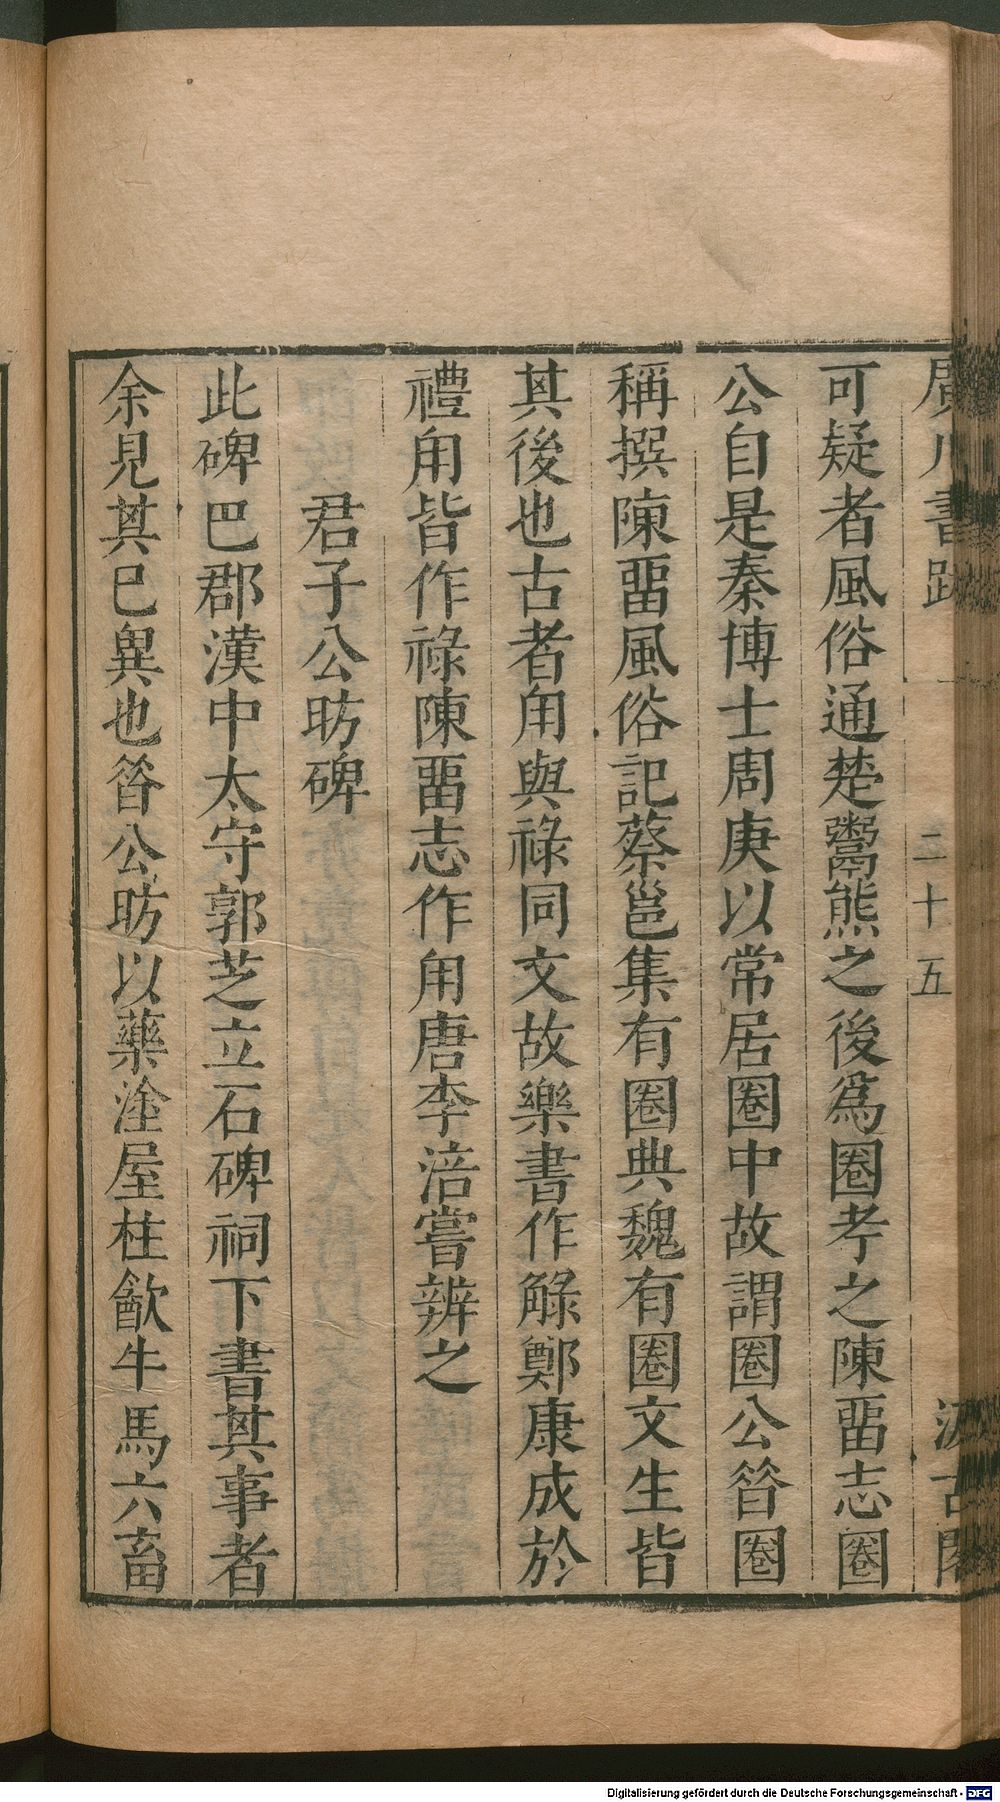 廣川書跋 二十五 汲古閣
可疑者風俗通楚鬻熊之後爲圈孝之陳畱志圈
公自是秦博士周庚以常居圈中故謂圈公昝圈
稱撰陳畱風俗記蔡邕集有圈典魏有圈文生皆
其後也古者甪與祿同文故樂書作觮鄭康成於
禮甪皆作祿陳畱志作甪唐李涪嘗辨之
君子公昉碑
此碑巴郡漢中太守郭芝立石碑祠下書其事者
余見其已異也昝公昉以藥塗屋柱飮牛馬六畜
Digitalisierung gefördert durch die Deutsche Forschungsgemeinschaft - DFG